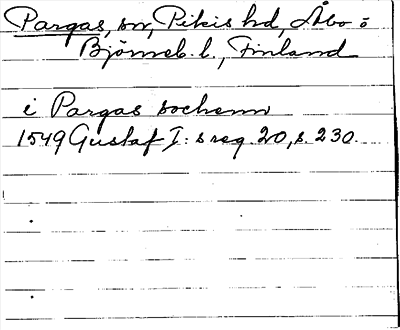 Pargas, sn, Pikis hd, Åbo o
Björneb. l., Finland
i Pargas sochenn
1549 Gustaf I:s reg. 20, s. 230.